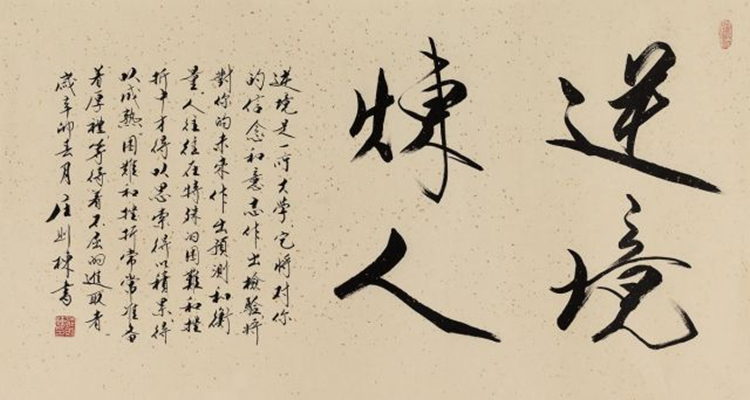 逆境
煉人
逆境是一所大學它將對你
的信念和意志作出檢驗將
對你的未來作出預測和衡
量人往往在特殊的困難和挫
折中才得以思索得以積累得
以成熟困難和挫折常常准备
着厚禮等待着不屈的進取者
歲辛卯春月庄則棟書